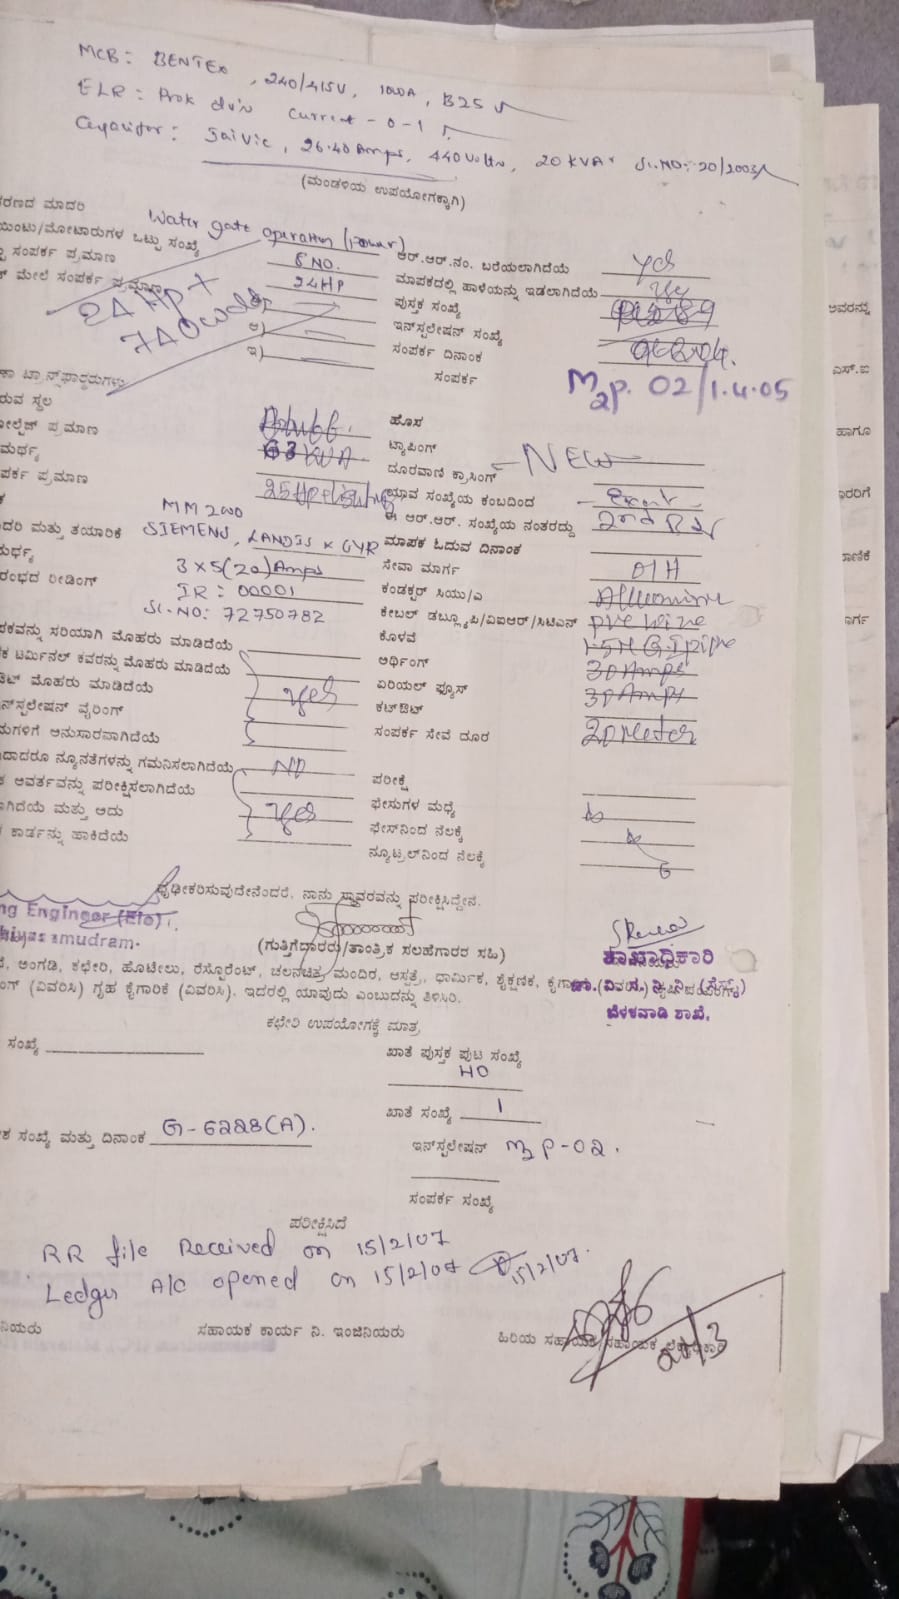 MCB: BENTEX, 240/415V, 100A, B25
ELR: Prok dv's Current - 0-1
Capacitor: Saivic, 26.40 Amps, 440 Volts, 20 KVAr Sl.NO: 20/2003
(ಮಂಡಳಿಯ ಉಪಯೋಗಕ್ಕಾಗಿ)
ರಣದ ಮಾದರಿ Water gate operation (Power)
ಯಿಂಟು/ಮೋಟಾರುಗಳ ಒಟ್ಟು ಸಂಖ್ಯೆ 8 NO. ಆರ್.ಆರ್.ನಂ. ಬರೆಯಲಾಗಿದೆಯೆ Yes
ಸಂಪರ್ಕ ಪ್ರಮಾಣ 24HP ಮಾಪಕದಲ್ಲಿ ಹಾಳೆಯನ್ನು ಇಡಲಾಗಿದೆಯೆ Yes
ಮೇಲೆ ಸಂಪರ್ಕ ಪ್ರಮಾಣ ಪುಸ್ತಕ ಸಂಖ್ಯೆ
24 HP +
740 watts
ಅ) ಇನ್‌ಸ್ಟಲೇಷನ್ ಸಂಖ್ಯೆ
ಇ) ಸಂಪರ್ಕ ದಿನಾಂಕ
ಸಂಪರ್ಕ M2p. 02/1.4.05
ಟ್ರಾನ್ಸ್‌ಫಾರ್ಮರುಗಳು
ರುವ ಸ್ಥಲ ಹೊಸ
ಪ್ರಮಾಣ ಟ್ಯಾಪಿಂಗ್
ಮರ್ಥ್ಯ 63 KVA ದೂರವಾಣಿ ಕ್ರಾಸಿಂಗ್ NEW
ಪರ್ಕ ಪ್ರಮಾಣ 25HP+lighting ಯಾವ ಸಂಖ್ಯೆಯ ಕಂಬದಿಂದ
MM 2000 ಈ ಆರ್.ಆರ್. ಸಂಖ್ಯೆಯ ನಂತರದ್ದು
ದರಿ ಮತ್ತು ತಯಾರಿಕೆ SIEMENS, LANDIS & GYR ಮಾಪಕ ಓದುವ ದಿನಾಂಕ
ಮರ್ಥ್ಯ 3 x 5(20) Amps ಸೇವಾ ಮಾರ್ಗ O/H
ರಂಭದ ರೀಡಿಂಗ್ IR: 00001 ಕಂಡಕ್ಟರ್ ಸಿಯು/ಎ
Sl.NO: 72750782 ಕೇಬಲ್ ಡಬ್ಲ್ಯೂಪಿ/ವಿಐಆರ್/ಸಿಟಿಎನ್ pvc wire
ಪಕವನ್ನು ಸರಿಯಾಗಿ ಮೊಹರು ಮಾಡಿದೆಯೆ ಕೊಳವೆ G.I pipe
ಕ ಟರ್ಮಿನಲ್ ಕವರನ್ನು ಮೊಹರು ಮಾಡಿದೆಯೆ ಅರ್ಥಿಂಗ್ 30 Amps
ಮೊಹರು ಮಾಡಿದೆಯೆ Yes ಏರಿಯಲ್ ಫ್ಯೂಸ್ 30 Amps
ನ್‌ಸ್ಟಲೇಷನ್ ವೈರಿಂಗ್ ಕಟ್‌ಔಟ್
ಮುಗಳಿಗೆ ಅನುಸಾರವಾಗಿದೆಯೆ ಸಂಪರ್ಕ ಸೇವೆ ದೂರ 20 Meter
ದಾದರೂ ನ್ಯೂನತೆಗಳನ್ನು ಗಮನಿಸಲಾಗಿದೆಯೆ NO
ಕ ಆವರ್ತವನ್ನು ಪರೀಕ್ಷಿಸಲಾಗಿದೆಯೆ ಪರೀಕ್ಷೆ
ಗಿದೆಯೆ ಮತ್ತು ಅದು Yes ಫೇಸುಗಳ ಮಧ್ಯೆ
ಕಾರ್ಡನ್ನು ಹಾಕಿದೆಯೆ ಫೇಸ್‌ನಿಂದ ನೆಲಕ್ಕೆ
ನ್ಯೂಟ್ರಲ್‌ನಿಂದ ನೆಲಕ್ಕೆ
ದೃಢೀಕರಿಸುವುದೇನೆಂದರೆ, ನಾನು ಸ್ಥಾವರವನ್ನು ಪರೀಕ್ಷಿಸಿದ್ದೇನೆ.
ng Engineer (Ele).
samudram.
(ಗುತ್ತಿಗೆದಾರರು/ತಾಂತ್ರಿಕ ಸಲಹೆಗಾರರ ಸಹಿ) ಶಾಖಾಧಿಕಾರಿ
ಅಂಗಡಿ, ಕಛೇರಿ, ಹೊಟೇಲು, ರೆಸ್ಟೊರೆಂಟ್, ಚಲನಚಿತ್ರ ಮಂದಿರ, ಆಸ್ಪತ್ರೆ, ಧಾರ್ಮಿಕ, ಶೈಕ್ಷಣಿಕ,
ಂಗ್ (ವಿವರಿಸಿ) ಗೃಹ ಕೈಗಾರಿಕೆ (ವಿವರಿಸಿ). ಇದರಲ್ಲಿ ಯಾವುದು ಎಂಬುದನ್ನು ತಿಳಿಸಿರಿ.
ಬೆಳಕವಾಡಿ ಶಾಖೆ.
ಕಛೇರಿ ಉಪಯೋಗಕ್ಕೆ ಮಾತ್ರ
ಸಂಖ್ಯೆ ಖಾತೆ ಪುಸ್ತಕ ಪುಟ ಸಂಖ್ಯೆ
HO
ಖಾತೆ ಸಂಖ್ಯೆ 1
ಸಂಖ್ಯೆ ಮತ್ತು ದಿನಾಂಕ G-6228(A). ಇನ್‌ಸ್ಟಲೇಷನ್ M2 P-02.
ಸಂಪರ್ಕ ಸಂಖ್ಯೆ
ಪರೀಕ್ಷಿಸಿದೆ
RR file Received on 15/2/07
Ledger A/c opened on 15/2/07 15/2/07.
ನಿಯರು ಸಹಾಯಕ ಕಾರ್ಯ ನಿ. ಇಂಜಿನಿಯರು ಹಿರಿಯ ಸಹಾಯಕ/ಸಹಾಯಕ